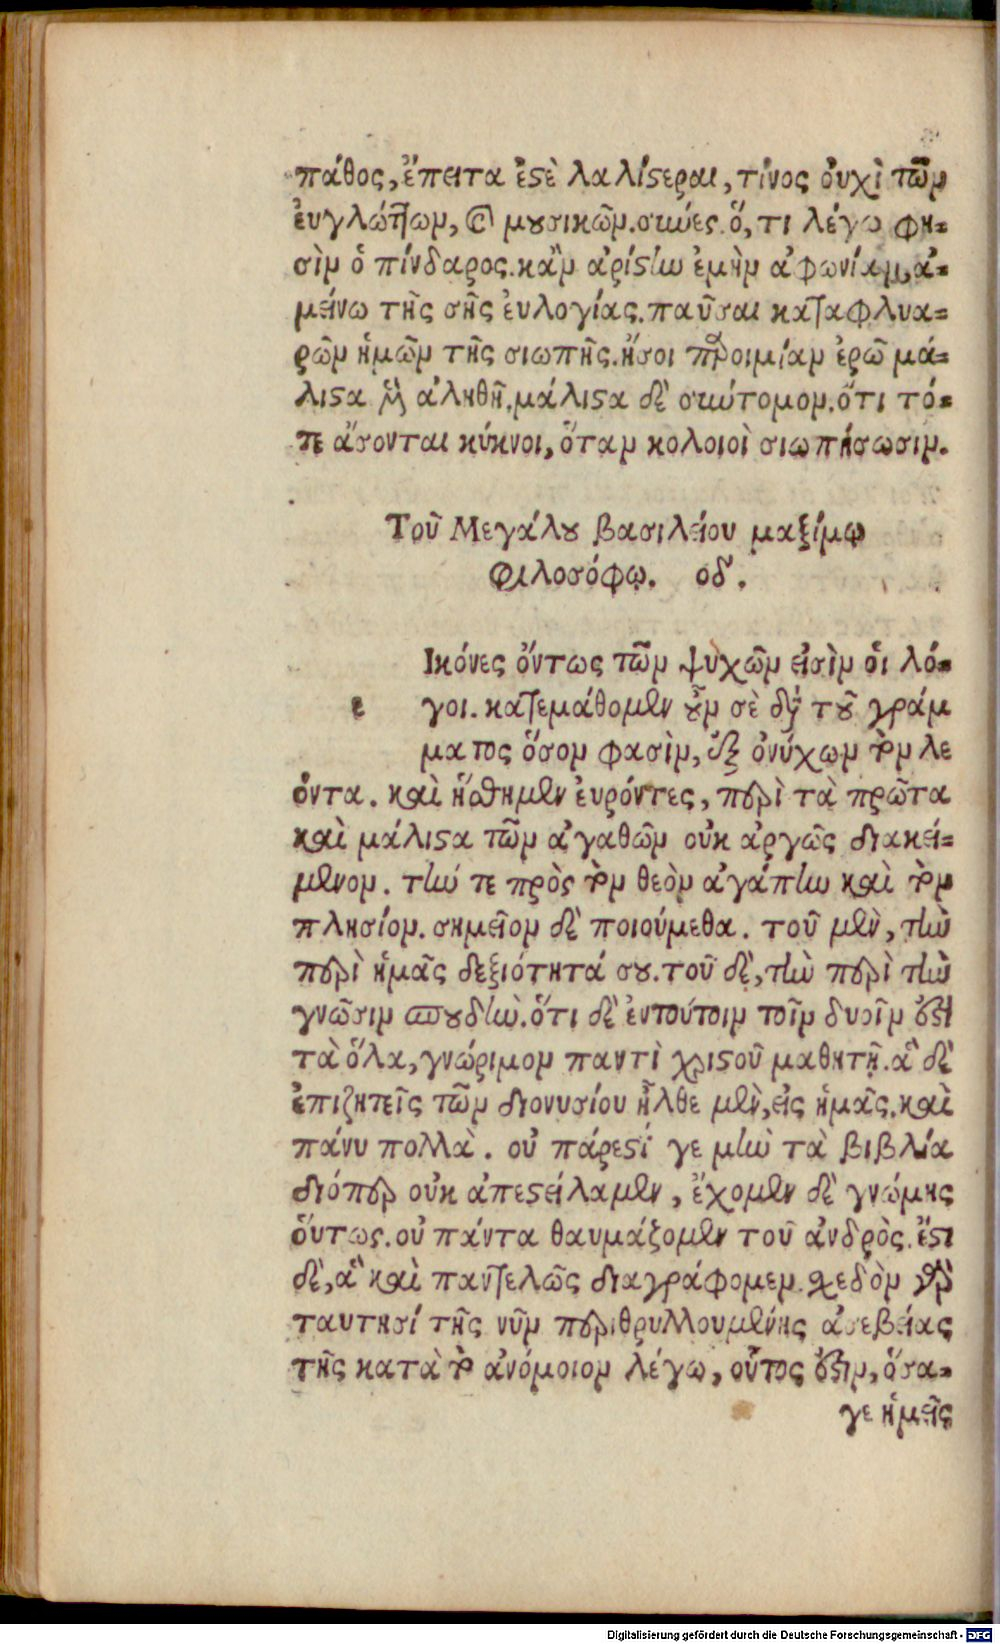 πάθος, ἔπειτα ἐϛὲ λαλίϛεραι, τίνος οὐχὶ τῶν
ἐυγλώττων, καὶ μȣσικῶν. σιωπῆς ὅ, τι λέγω φη-
σὶν ὁ πίνδαρος. κἂν ἀρίϛην ἐμὴν ἀφωνίαν, ἀ-
μείνω τῆς σῆς ἐυλογίας. παῦσαι καταφλυα-
ρῶν ἡμῶν τῆς σιωπῆς. ἤσοι προιμίαν ἐρῶ μά-
λιϛα μὲν ἀληθῆ. μάλιϛα δὲ σιωύτομον. ὅτι τό-
τε ἄσονται κύκνοι, ὅταν κολοιοὶ σιωπήσωσιν.
Τοῦ Μεγάλȣ βασιλείου μαξίμῳ
φιλοσόφῳ. οδ.
Ικόνες ὄντως τῶν ψυχῶν εἰσὶν ὁἱ λό-
ε γοι. κατεμάθομεν ȣ̓͂ν σὲ διὰ τȣ͂ γράμ
ματος ὅσον φασὶν, ἐξ ὀνύχων τὸν λε
όντα. καὶ ἥσθημεν ἑυρόντες, περὶ τὰ πρῶτα
καὶ μάλιϛα τῶν ἀγαθῶν οὐκ ἀργῶς διακεί-
μενον. τήν τε πρὸς τὸν θεὸν ἀγάπην καὶ τὸν
πλησίον. σημεῖον δὲ ποιούμεθα. τοῦ μὲν, τὴν
περὶ ἡμᾶς δεξιότητά σȣ. τοῦ δὲ, τὴν περὶ τὴν
γνῶσιν σπȣδὴν. ὅτι δὲ ἐντούτοιν τοῖν δυοῖν ἐϛὶ
τὰ ὅλα, γνώριμον παντὶ χριϛοῦ μαθητῇ. ἃ δὲ
ἐπιζητεῖς τῶν διονυσίου ἦλθε μὲν, εἰς ἡμᾶς, καὶ
πάνυ πολλὰ. οὐ πάρεϛί γε μὴν τὰ βιβλία
διόπερ οὐκ ἀπεϛείλαμεν, ἔχομεν δὲ γνώμης
ὅυτως. οὐ πάντα θαυμάζομεν τοῦ ἀνδρὸς. ἔϛι
δὲ, ἃ καὶ παντελῶς διαγράφομεν. σχεδὸν γὰρ
ταυτησί τῆς νῦν περιθρυλλουμένης ἀσεβείας
τῆς κατὰ τὸ ἀνόμοιον λέγω, οὗτος ἐϛὶν, ὅσα-
γε ἡμεῖς
Digitalisierung gefördert durch die Deutsche Forschungsgemeinschaft - DFG